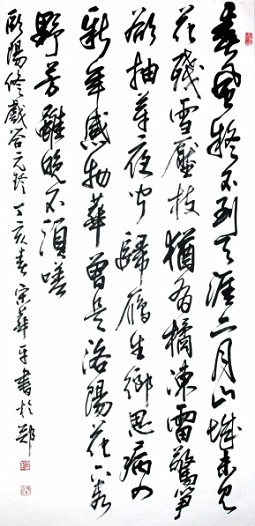 春風疑不到天涯二月山城未見
花殘雪壓枝猶有橘凍雷驚筍
欲抽芽夜聞歸雁生鄉思病入
新年感物華曾是洛陽花下客
野芳雖晚不須嗟
歐陽修戲答元珍 丁亥春宋華平書於鄭